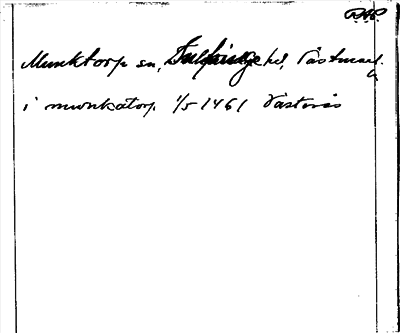 RAP.
Munktorp sn, Snefringe hd, Västmanl.
i munkatorp 1/5 1461 Västerås